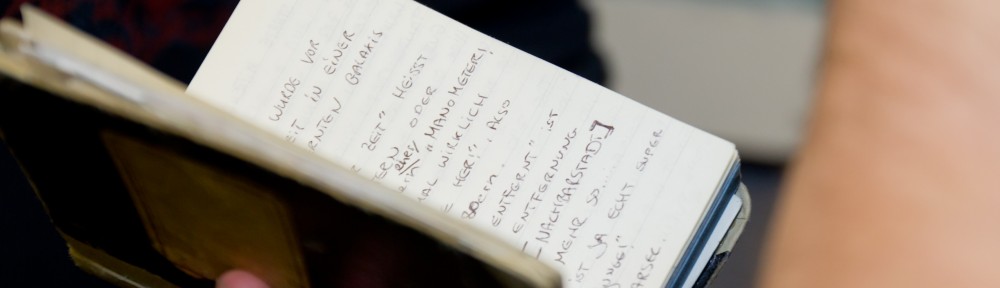 WURDE VOR
EIT IN EINER
RNTEN GALAXIS
ZEIT" HEISST
ERN ODER
eher "MANOMETER!
MAL WIRKLICH
HER!". ALSO
ENTFERNT" IST
ENTFERNUNG
NACHBARSTADT]
MEHR SO...
IST JA ECHT SUPER
ARSEC.